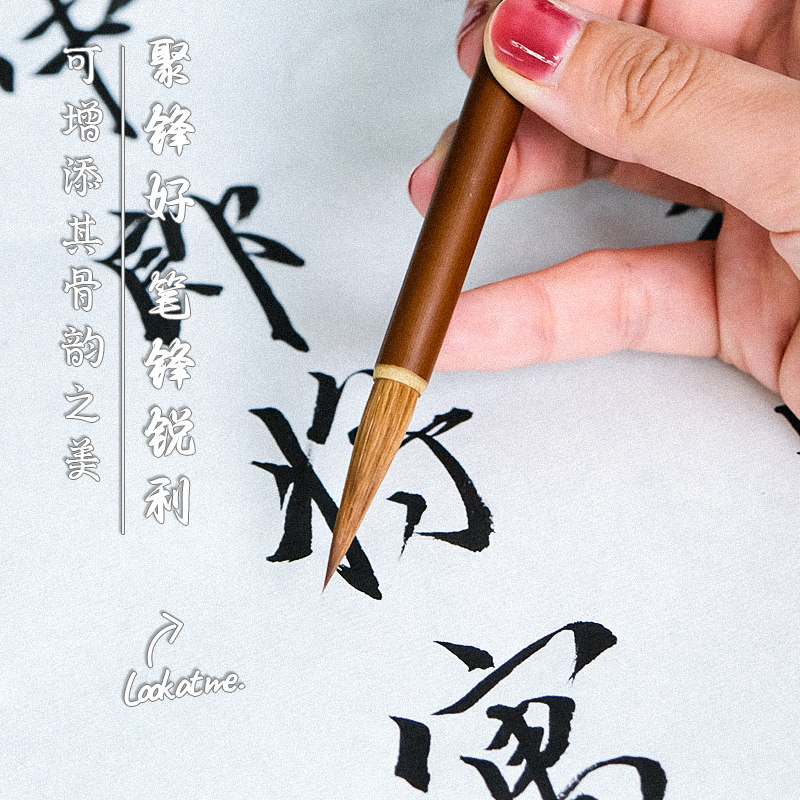 聚锋好 笔锋锐利
可增添其骨韵之美
将
Look at me.